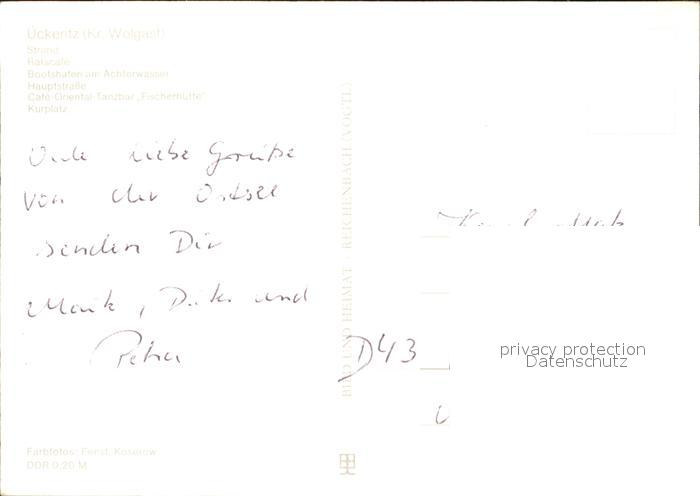 Ückeritz (Kr. Wolgast)
Strand
Ratscafé
Bootshafen am Achterwasser
Hauptstraße
Café-Oriental-Tanzbar „Fischerhütte"
Kurplatz
Viele liebe Grüße
von der Ostsee
senden Dir
Maik, Dieter und
Petra
BILD UND HEIMAT · REICHENBACH (VOGTL)
D43
privacy protection
Datenschutz
Farbfotos: Fenst, Koserow
DDR 0,20 M